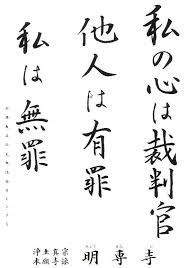 私の心は裁判官
他人は有罪
私は無罪
浄土真宗
本願寺派
明専寺